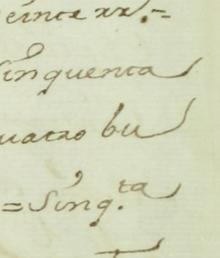 einte xx.=
Cinquenta
uatro bu
= Sinq.ta